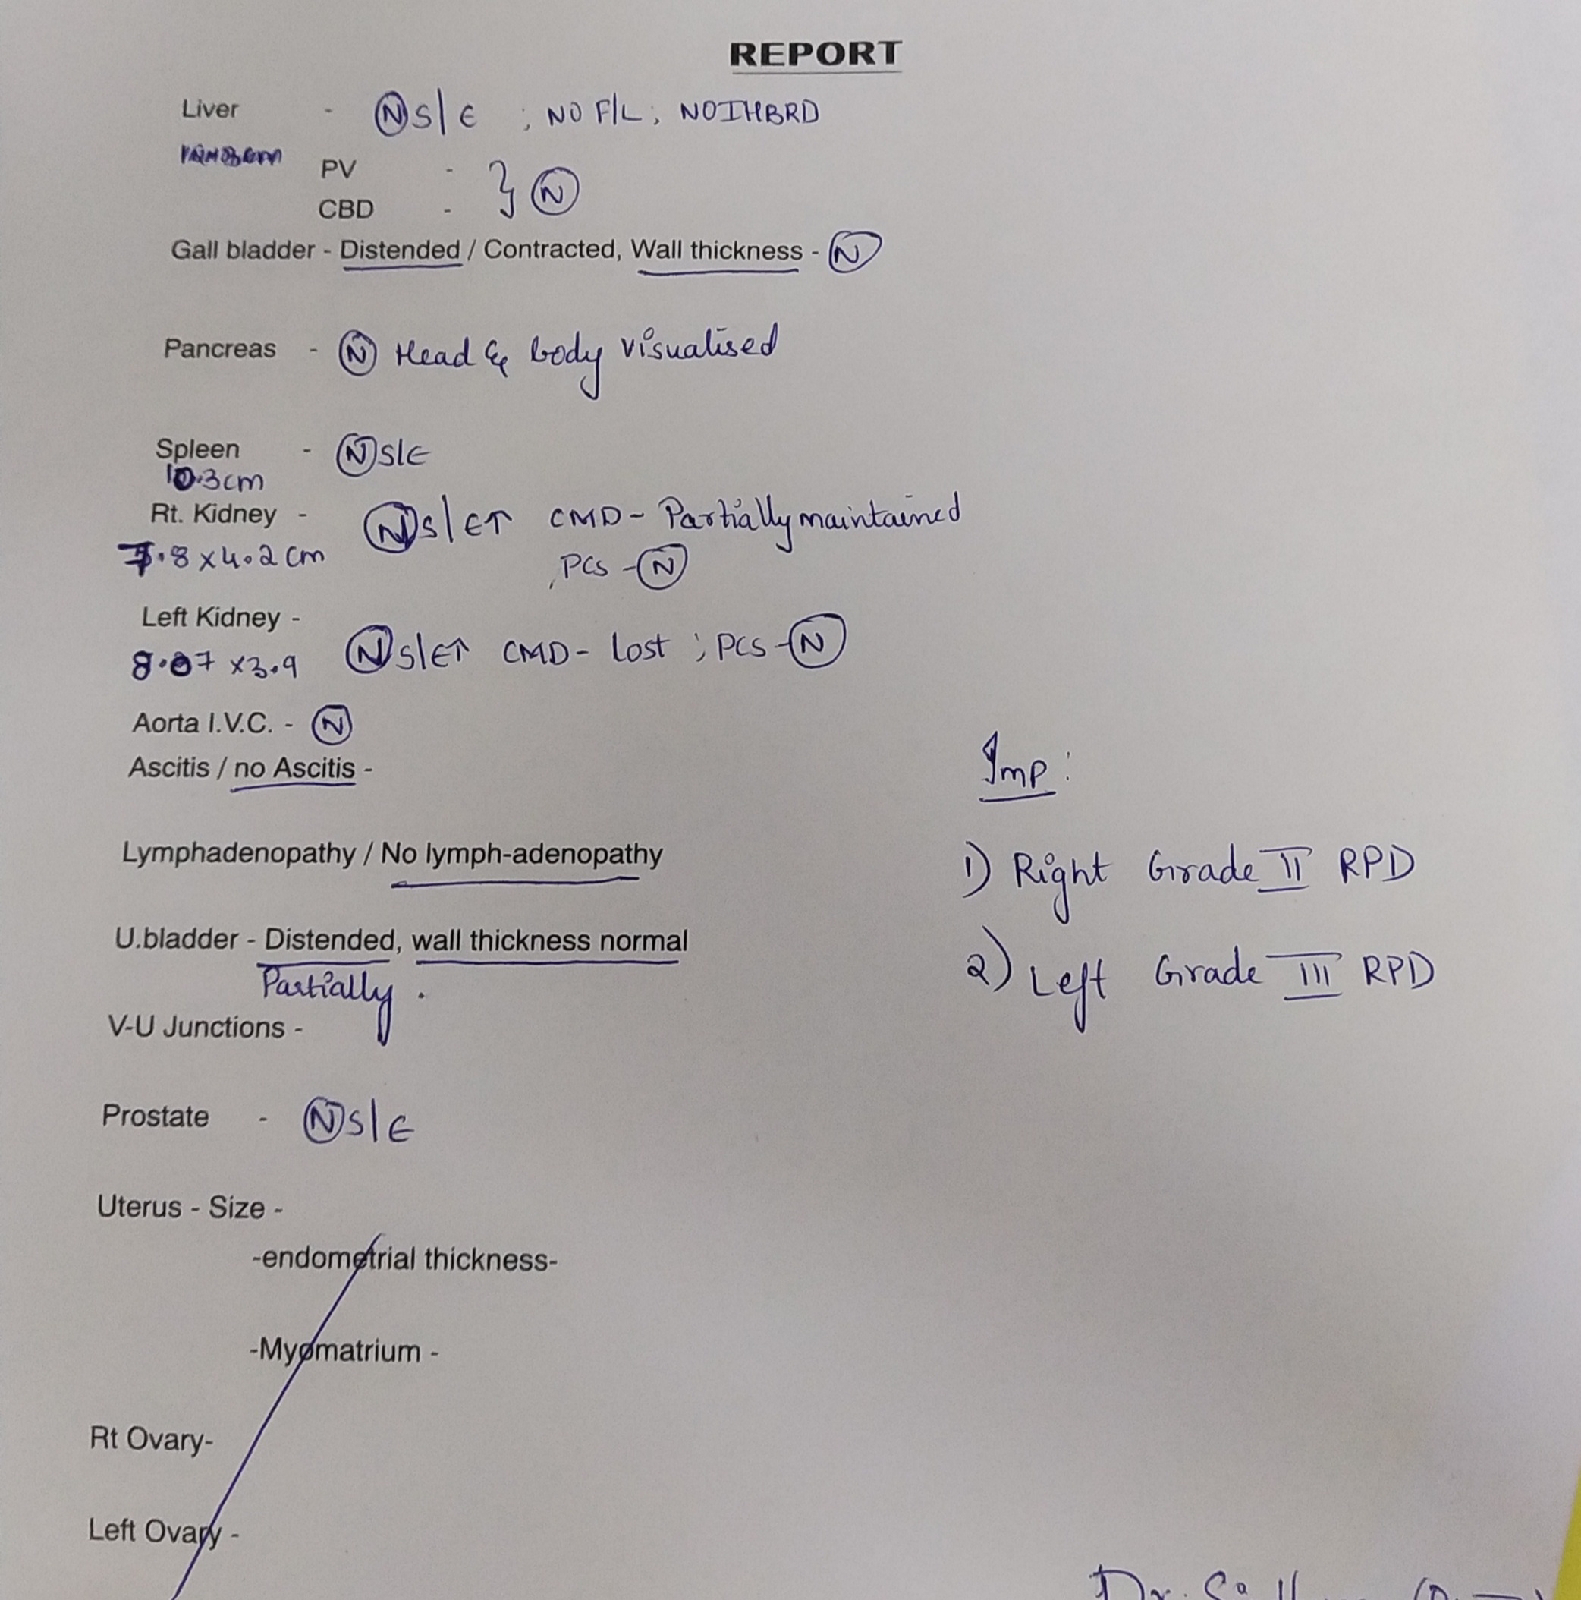 REPORT
Liver - Ⓝ S/E ; NO F/L ; NO IHBRD
PV - } Ⓝ
CBD -
Gall bladder - Distended / Contracted, Wall thickness - Ⓝ
Pancreas - Ⓝ Head & body visualised
Spleen - Ⓝ S/E
10.3cm
Rt. Kidney - Ⓝ S/E↑ CMD - Partially maintained
7.8 x 4.2 cm , PCS - Ⓝ
Left Kidney -
8.07 x 3.9 Ⓝ S/E↑ CMD - lost ; PCS - Ⓝ
Aorta I.V.C. - Ⓝ
Ascitis / no Ascitis -
Imp :
Lymphadenopathy / No lymph-adenopathy
1) Right Grade II RPD
U.bladder - Distended, wall thickness normal
Partially .
2) Left Grade III RPD
V-U Junctions -
Prostate - Ⓝ S/E
Uterus - Size -
-endometrial thickness-
-Myomatrium -
Rt Ovary-
Left Ovary -
Dr.